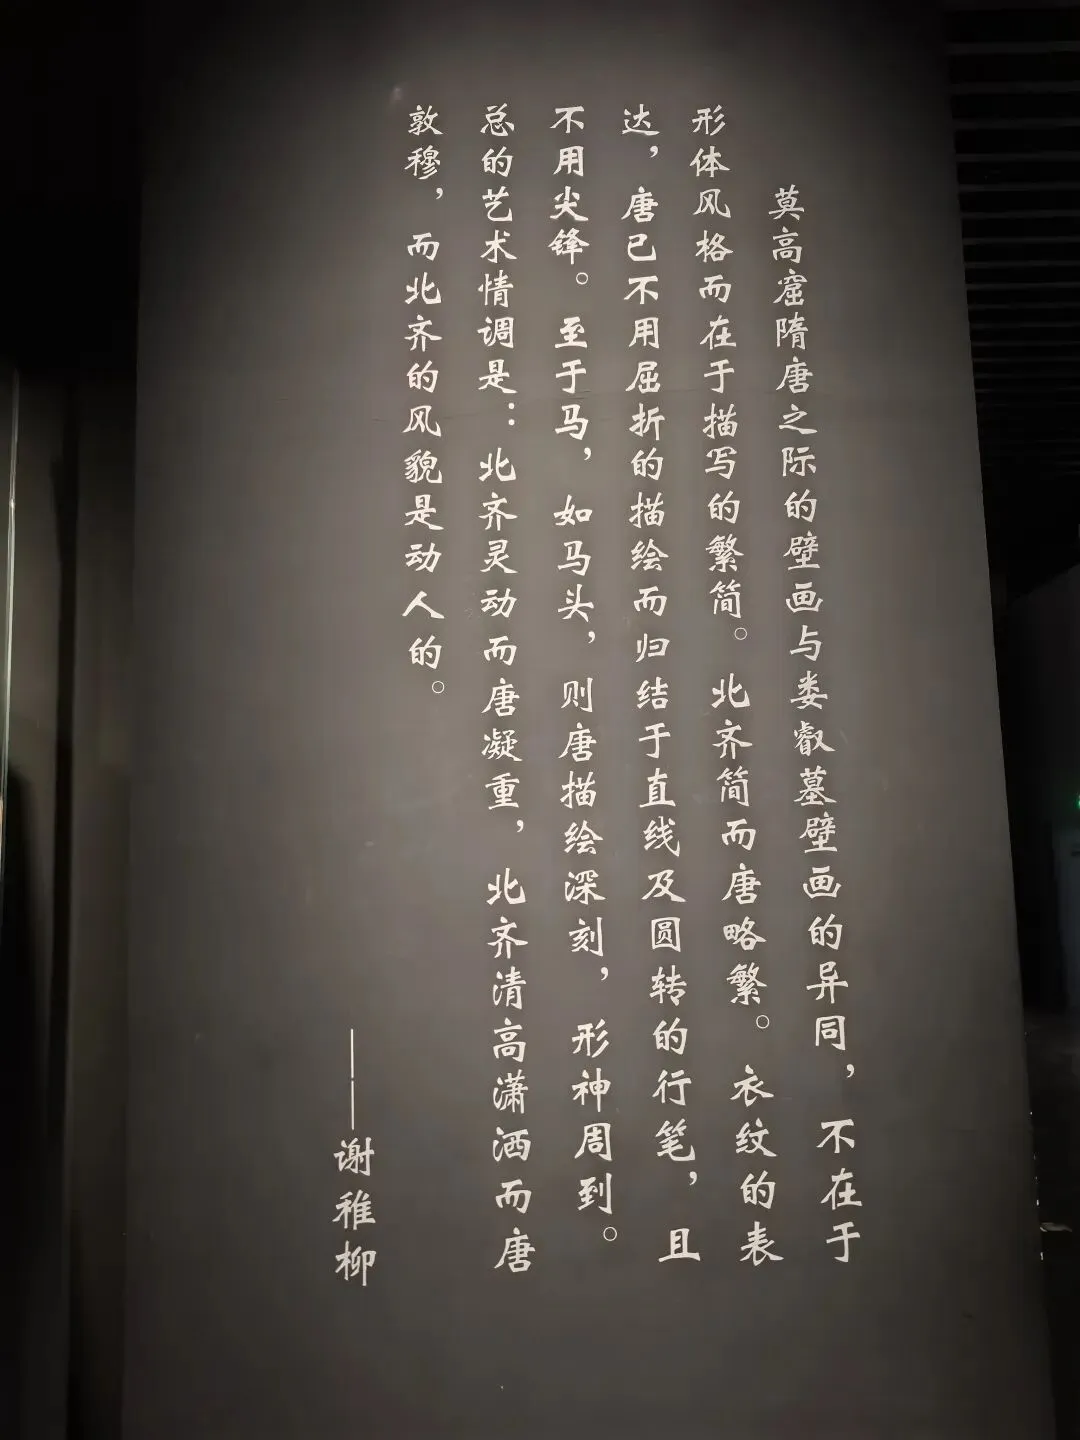 莫高窟隋唐之际的壁画与娄叡墓壁画的异同，不在于
形体风格而在于描写的繁简。北齐简而唐略繁。衣纹的表
达，唐已不用屈折的描绘而归结于直线及圆转的行笔，且
不用尖锋。至于马，如马头，则唐描绘深刻，形神周到。
总的艺术情调是：北齐灵动而唐凝重，北齐清高潇洒而唐
敦穆，而北齐的风貌是动人的。
——谢稚柳